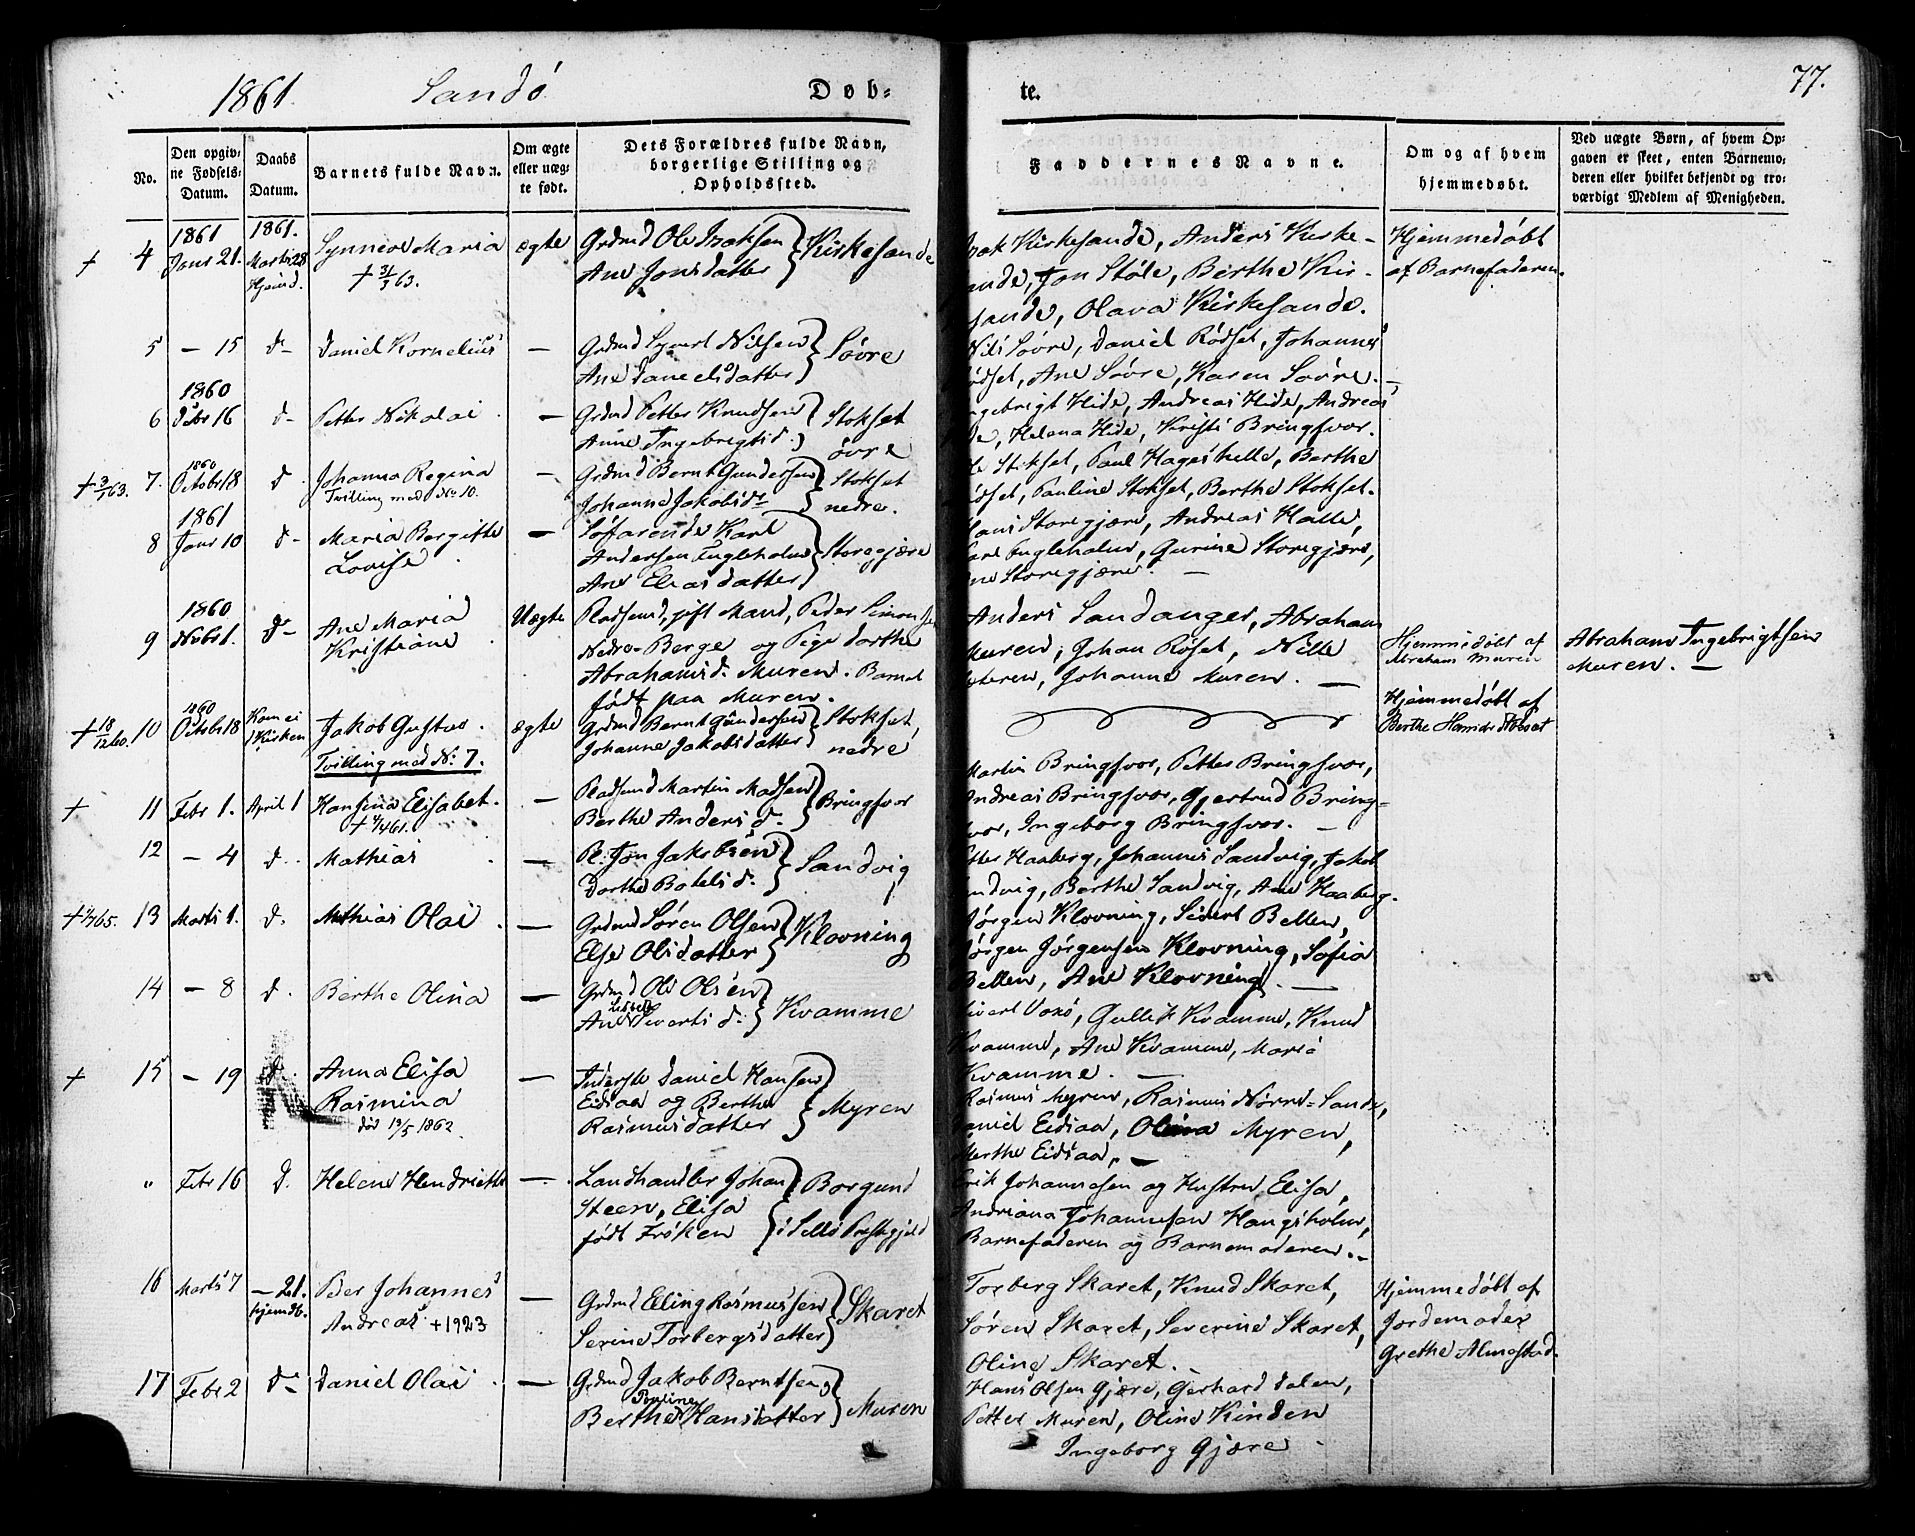 1861. Sandö Döb= te. 77.
No.
Den opgiv=
ne Fødsels=
Datum.
Daabs
Datum.
Barnets fulde Navn.
Om ægte
eller uæg=
te født.
Dets Forældres fulde Navn,
borgerlige Stilling og
Opholdssted.
Faddernes Navne.
Om og af hvem
hjemmedøbt.
Ved uægte Børn, af hvem Op=
gaven er skeet, enten Barnemo=
deren eller hvilket bekjendt og tro=
værdigt Medlem af Menigheden.
† 4
1861
Janr 21.
1861.
Marts 28
Hjemd.
Synneve Maria
† 31/3 63.
ægte
Grdmd Ole Isaksen
Ane Jonsdatter } Kirkesande
Isak Kirkesande, Anders Kirke-
sande, Jon Støle, Berthe Kir-
sande, Olava Kirkesande.
Hjemmedøbt
af Barnefaderen.
5 — 15 d– Daniel Kornelius —
Grdmd Syvert Nilsen
Ane Danielsdatter } Søvre
Nils Søvre, Daniel Rödset, Johannes
Rödset, Ane Søvre, Karen Søvre. —
6
1860
Debr 16 d– Petter Nikolai —
Grdmd Petter Knudsen
Anne Ingebrigtsd. } Stokset
øvre
Ingebrigt Hide, Andreas Hide, Andreas
Hide, Helena Hide, Kristi Bringsvor.
† 3/1 63. 7.
1860
Octobr 18 d. Johanna Regina
Tvilling med No 10. —
Grdmd Bernt Gundersen
Johanne Jakobsdr } Stokset
nedre.
Ole Stokset, Paul Hageshelle, Berthe
Rödset, Pauline Stokset, Berthe Stokset.
8
1861
Janr 10 d– Maria Bergitte
Lovise —
Søfarende Karl
Andersen Fugleholm
Ane Eliasdatter } Storegjære
Hans Storegjære, Andreas Halle,
Karl Fugleholm, Gurine Storegjære,
Ane Storegjære. —
9
1860
Nvbr 1. d– Ane Maria
Kristiane
Uægte
Pladsmd, gift Mand, Peder Simonsen
Nedre-Berge og Pige Dorthe
Abrahamsd. Muren. Barnet
født paa Muren.
Anders Sandanger, Abraham
Muren, Johan Röset, Nille
Johanne Muren. —
Hjemmedøbt af
Abraham Muren
Abraham Ingebrigtsen
Muren. —
† 18/12 60. 10
1860
Octobr 18
Kom ei
i Kirken
Jakob Gustav.
Tvilling med No: 7.
ægte
Grdmd Bernt Gundersen
Johanne Jakobsdatter } Stokset,
nedre
Hjemmedøbt af
Berthe Stokset
† 11 Febr 1. April 1 Hansina Elisabet.
† 4/4 61. —
Pladsmd Martin Madsen
Berthe Andersd. } Bringsvor
Martin Bringsvor, Petter Bringsvor,
Andreas Bringsvor, Gjertrud Bring-
svor, Ingeborg Bringsvor. —
12 — 4 d. Mathias —
Pl. Jon Jakobsen
Dorthe Botelsd. } Sandvig
Petter Haaberg, Johannes Sandvig, Jakob
Sandvig, Berthe Sandvig, Ane Haaberg.
13 Marts 1. d. Mathias Olai. —
Grdmd Søren Olsen
Else Olsdatter } Klovning
Jørgen Klovning, Sivert Bellen,
Jørgen Jørgensen Klovning, Sofia
Bellen, Ane Klovning. —
14 — 8 d. Berthe Olina —
Grdmd Ole Olsen
Ane Sivertsd. } Kvamme
Sivert Voxø, Gullik Kvamme, Knud
Kvamme, Ane Kvamme, Maria
Kvamme. —
† 15 — 19 d. Anna Elisa
Rasmina
død 19/5 1862. —
Inderste Daniel Hansen
Eidsaa og Berthe
Rasmusdatter } Myren
Rasmus Myren, Rasmus Nörre-Sande,
Daniel Eidsaa, Olina Myren,
Berthe Eidsaa. —
" Febr 16 d. Helene Hendrikke —
Landhandler Johan
Steen, Elisa
født Fröken } Borgund
i Sellö Prestegjeld
Erik Johannesen og Hustru Elisa,
Andriana Johannesen Haugsholm,
Barnefaderen og Barnemoderen. —
16 Marts 7 — 21.
hjemdb.
Per Johannes
Andreas +1923 —
Grdmd Elling Rasmussen
Serine Torbergsdatter } Skaret
Torberg Skaret, Knud Skaret,
Søren Skaret, Severine Skaret,
Oline Skaret.
Hjemmedøbt af
Jordemoder
Grethe Almestad.
17 Febr 2 d– Daniel Olai. —
Grdmd Jakob Berntsen,
Berthe Pauline Hansdatter } Muren
Hans Olsen Gjære, Gerhard Dalen,
Petter Muren, Oline Kinden
Ingeborg Gjære